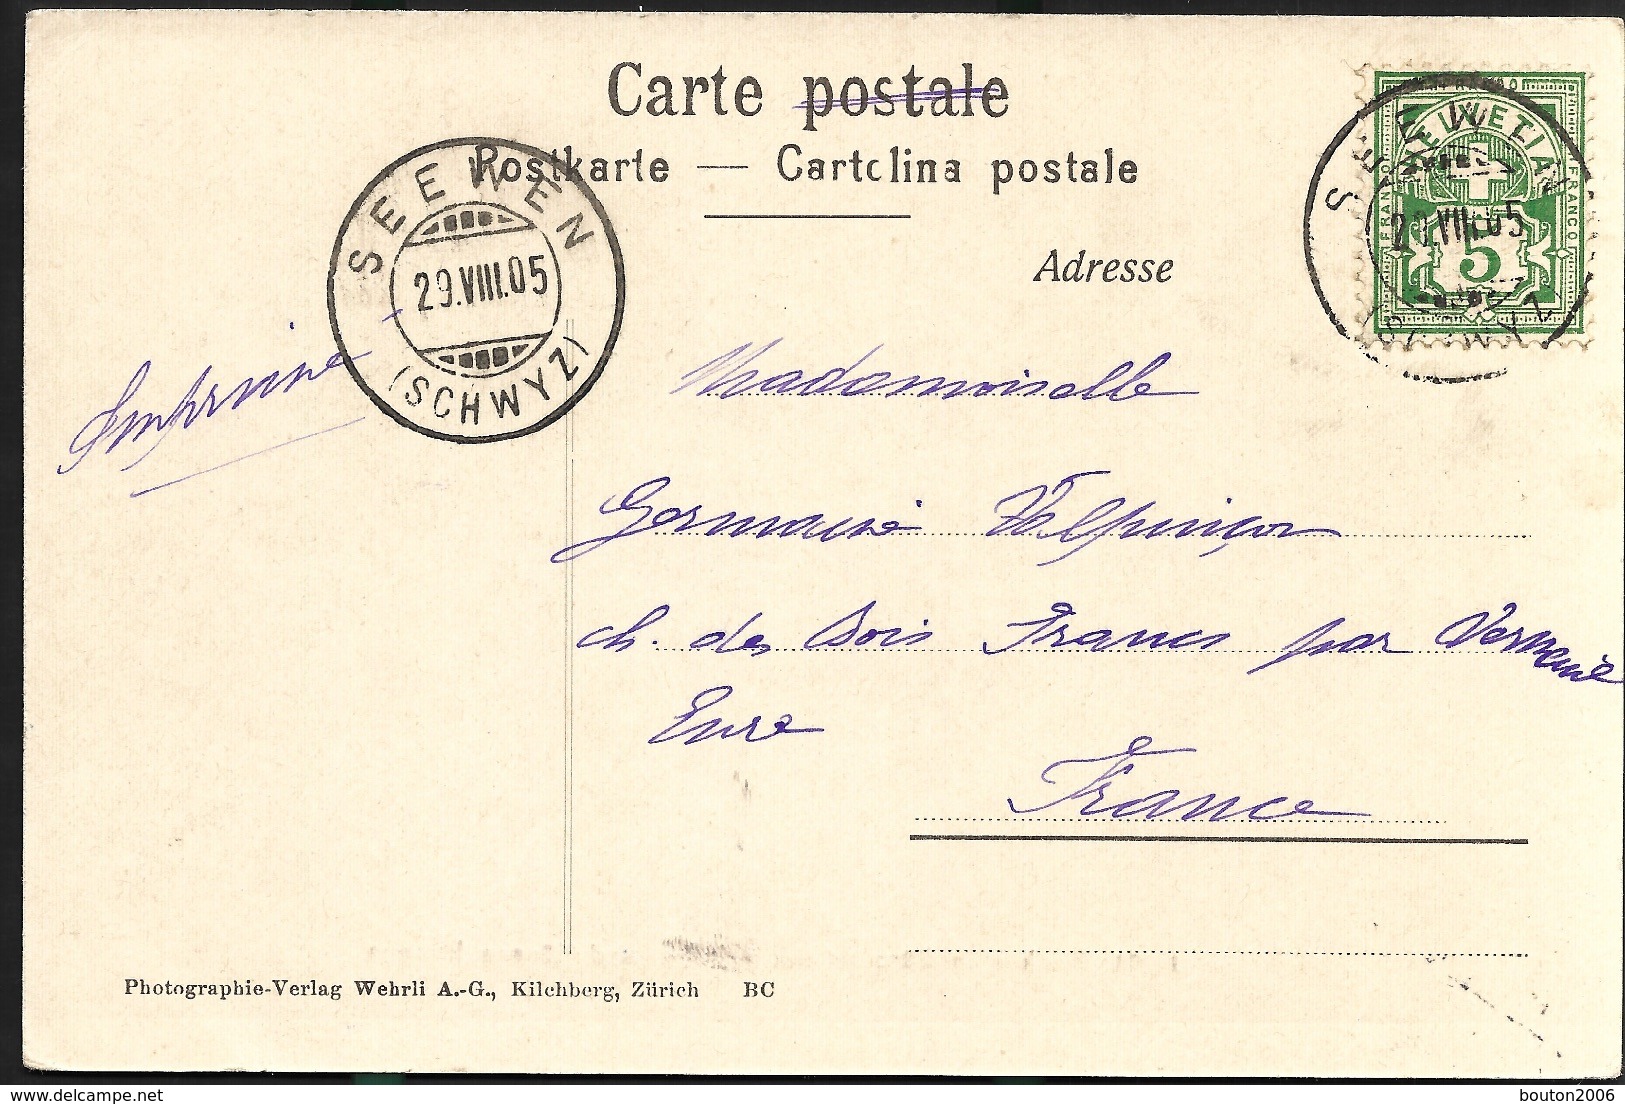 Carte postale
Postkarte — Cartolina postale
Adresse
SEEWEN
29.VIII.05
(SCHWYZ)
FRANCO
HELVETIA
FRANCO
FRANCO
5
SEEWEN
29.VIII.05
(SCHWYZ)
Imprimé
Mademoiselle
Germaine Valpinçon
ch. des Bois Francs par Verneuil
Eure
France
Photographie-Verlag Wehrli A.-G., Kilchberg, Zürich BC
delcampe.net
bouton2006